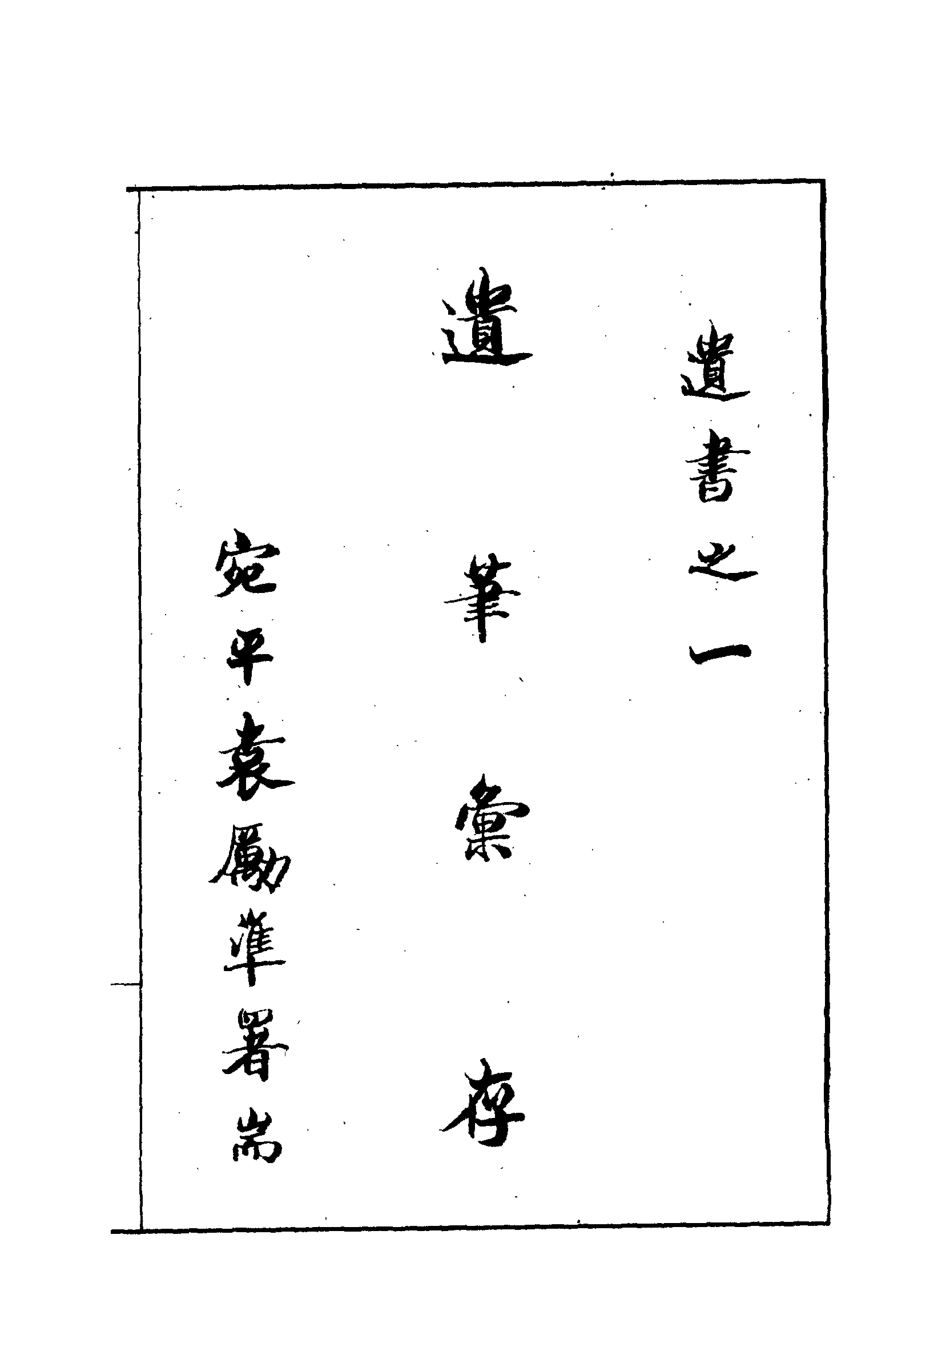 遺書之一
遺筆彙存
宛平袁勵準署耑